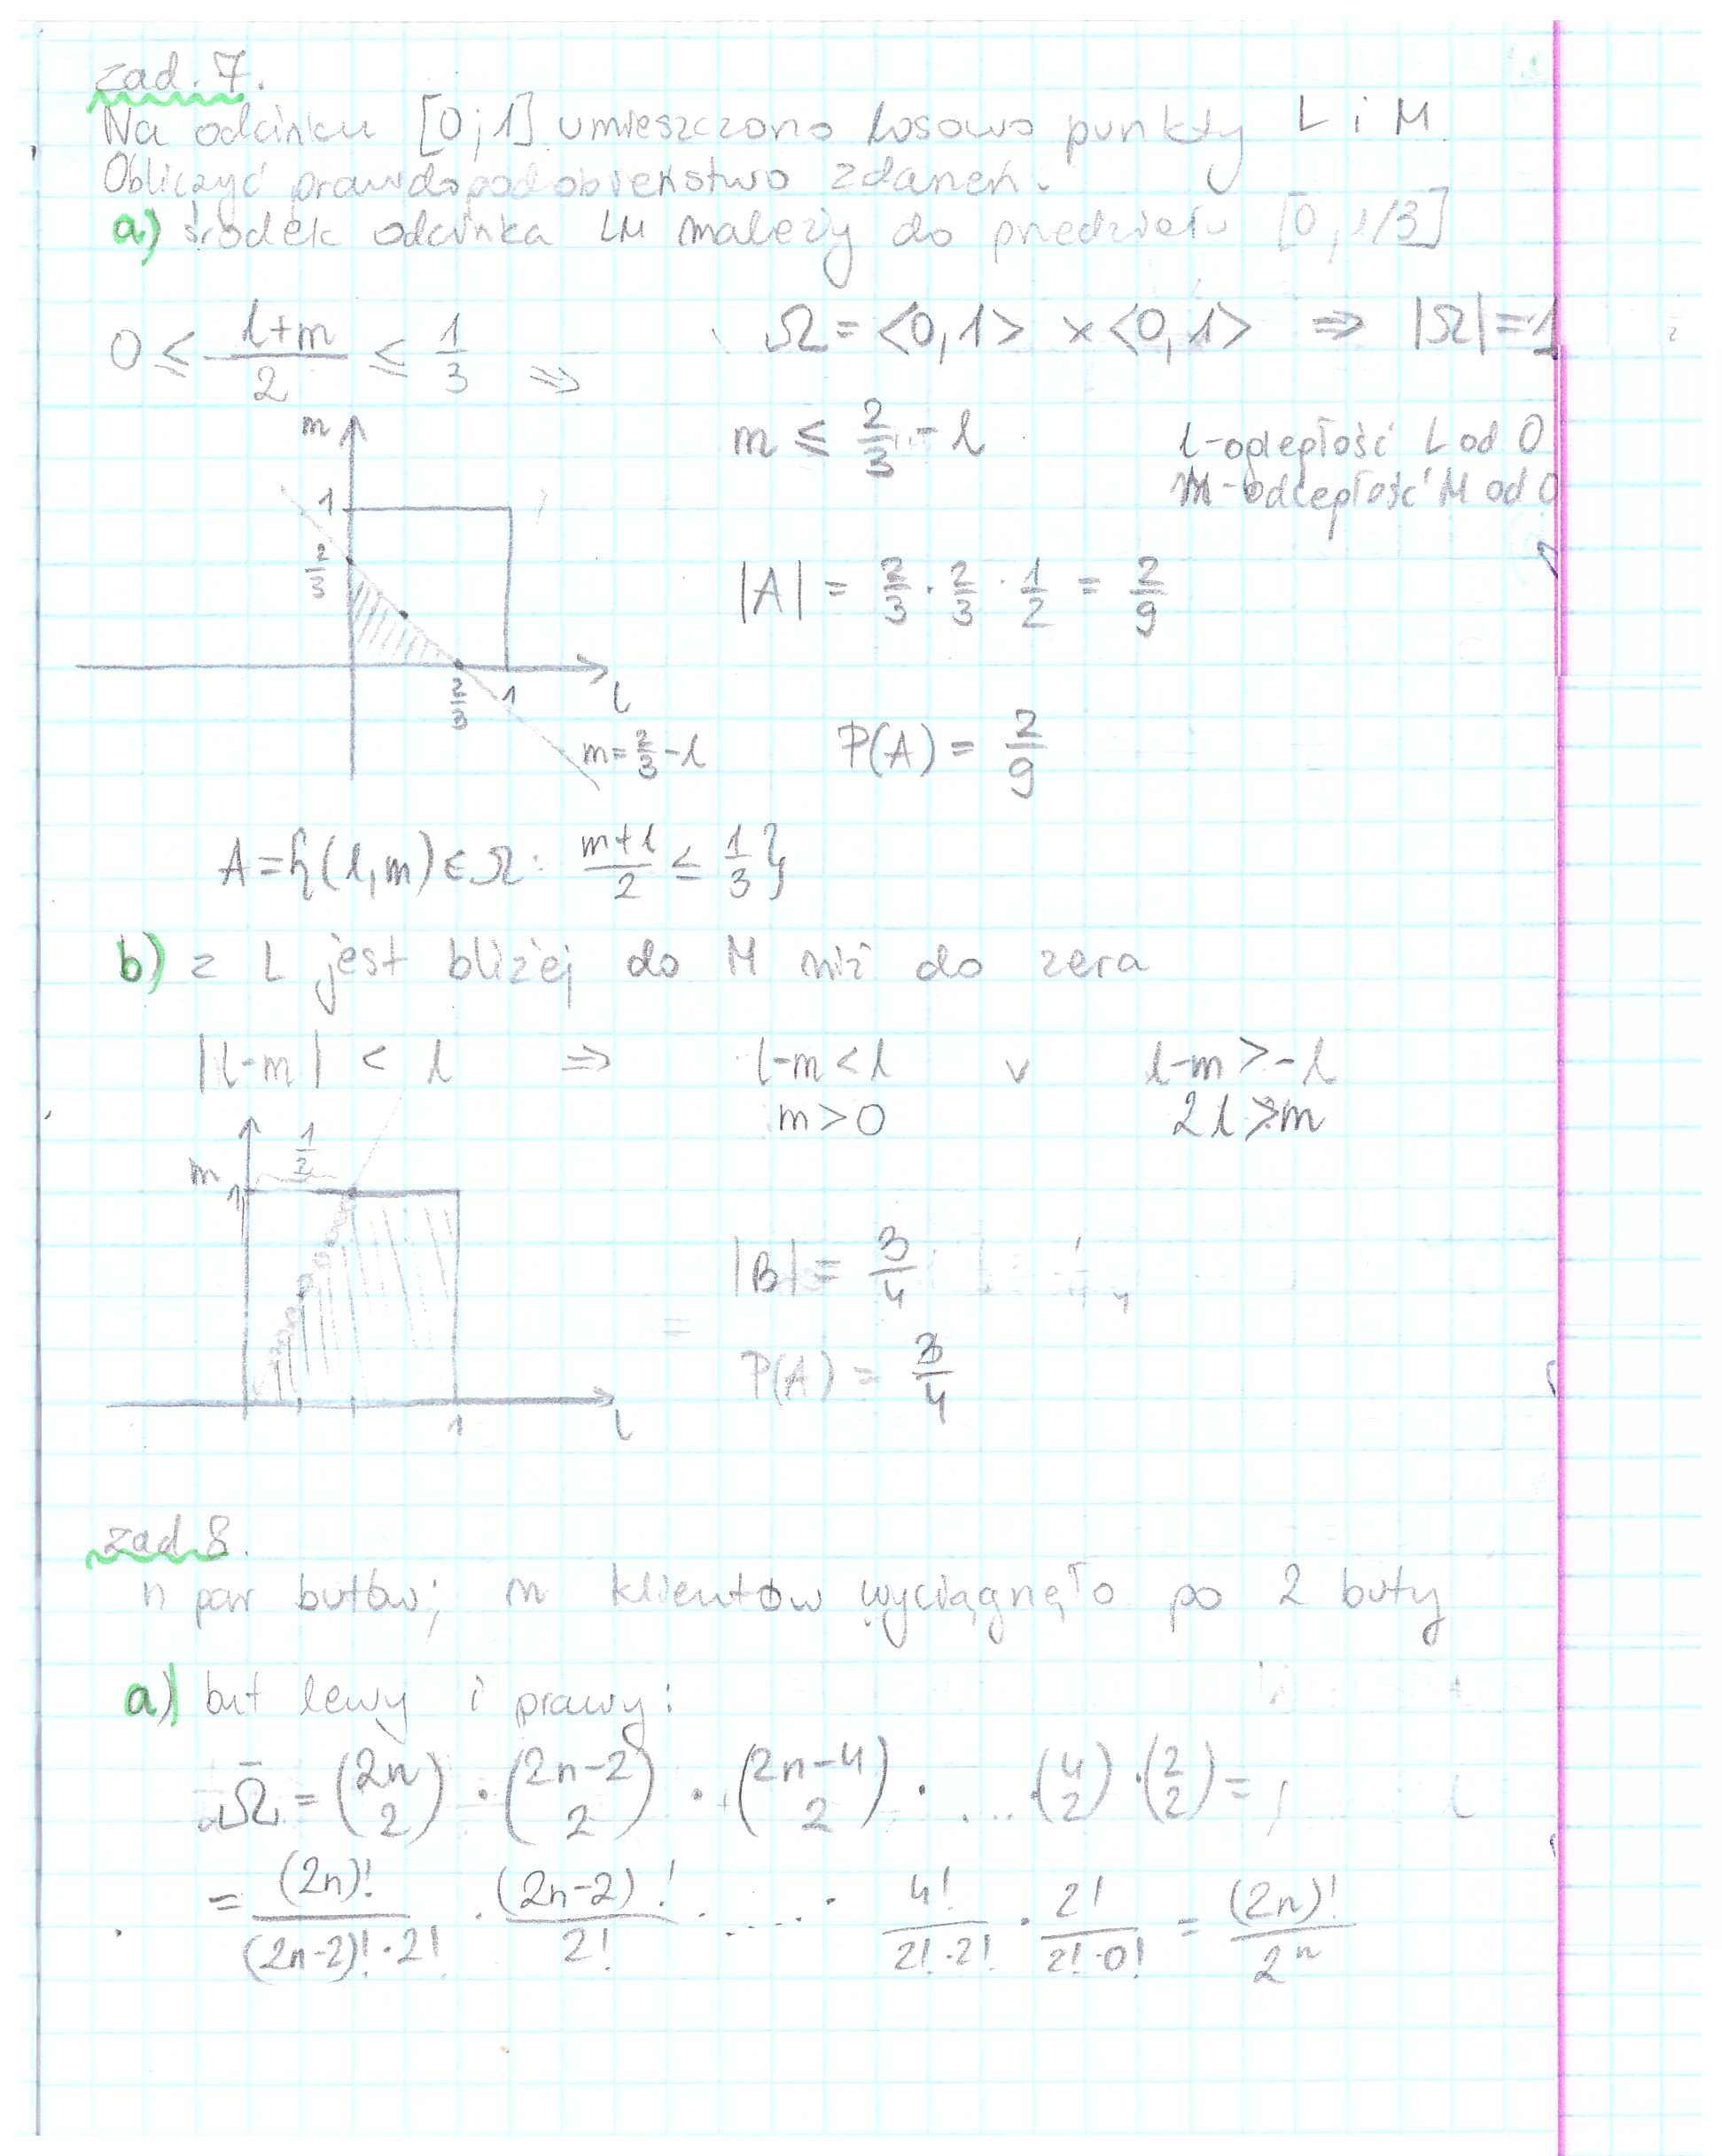 zad. 7.
Na odcinku [0;1] umieszczono losowo punkty L i M.
Obliczyć prawdopodobieństwo zdarzeń.
a) środek odcinka LM należy do przedziału [0,1/3]
0 ≤ (l+m)/2 ≤ 1/3 ⇒ Ω = <0,1> × <0,1> ⇒ |Ω|=1
m ≤ 2/3 - l
l-odległość L od 0
m-odległość M od 0
m
1
2/3
|A| = 2/3 · 2/3 · 1/2 = 2/9
2/3 1 l
m=2/3-l
P(A) = 2/9
A={(l,m)∈Ω: (m+l)/2 ≤ 1/3}
b) z L jest bliżej do M niż do zera
|l-m| < l ⇒ l-m<l v l-m>-l
m>0 2l>m
1/2
m
1
|B| = 3/4
P(A) = 3/4
1 l
zad 8.
n par butów; n klientów wyciągnęło po 2 buty
a) but lewy i prawy:
Ω̄ = (2n 2) · (2n-2 2) · (2n-4 2) · .... · (4 2) · (2 2) =
= (2n)!/((2n-2)!·2!) · (2n-2)!/2! · ..... · 4!/(2!·2!) · 2!/(2!·0!) = (2n)!/2ⁿ